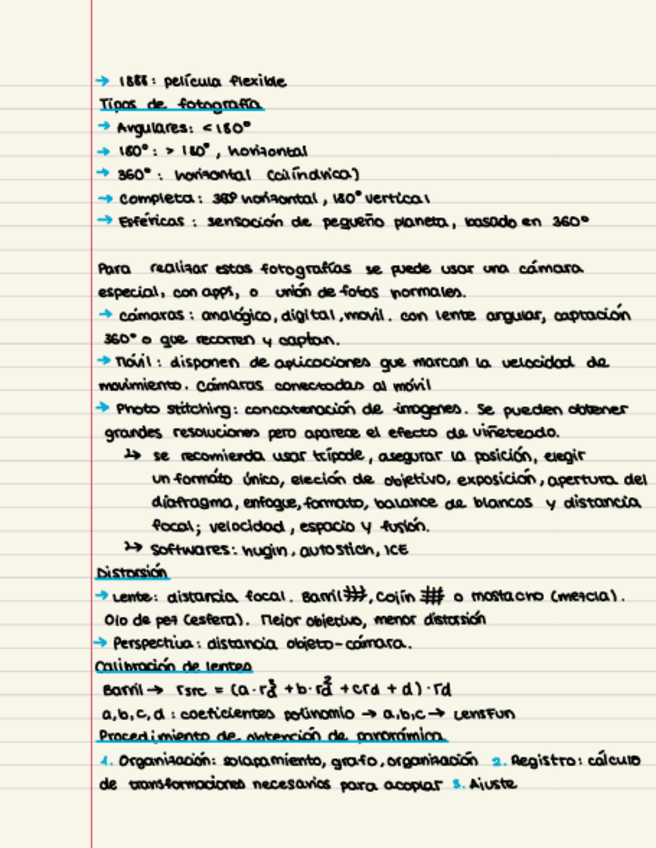 → 1888: película flexible
Tipos de fotografía
→ Angulares: < 180°
→ 180°: > 180°, horizontal
→ 360°: horizontal (cilíndrica)
→ Completa: 360° horizontal, 180° vertical
→ Esféricas: sensación de pequeño planeta, basado en 360°
Para realizar estas fotografías se puede usar una cámara
especial, con apps, o unión de fotos normales.
→ cámaras: analógico, digital, movil. con lente angular, captación
360° o que recorren y captan.
→ Móvil: disponen de aplicaciones que marcan la velocidad de
movimiento. Cámaras conectadas al móvil
→ Photo stitching: concatenación de imagenes. Se pueden obtener
grandes resoluciones pero aparece el efecto de viñeteado.
↳ se recomienda usar trípode, asegurar la posición, elegir
un formato único, eleción de objetivo, exposición, apertura del
diafragma, enfoque, formato, balance de blancos y distancia
focal; velocidad, espacio y fusión.
↳ Softwares: hugin, autostich, ICE
Distorsión
→ Lente: distancia focal. Barril, Cojín o mostacho (mezcla).
Ojo de pez (esfera). Mejor objetivo, menor distorsión
→ Perspectiva: distancia objeto-cámara.
Calibración de lentes
Barril → rsrc = (a·rd³ + b·rd² + crd + d)·rd
a,b,c,d: coeficientes polinomio → a,b,c → LensFun
Procedimiento de obtención de panorámica
1. Organización: solapamiento, grafo, organización 2. Registro: cálculo
de transformaciones necesarias para acoplar 3. Ajuste